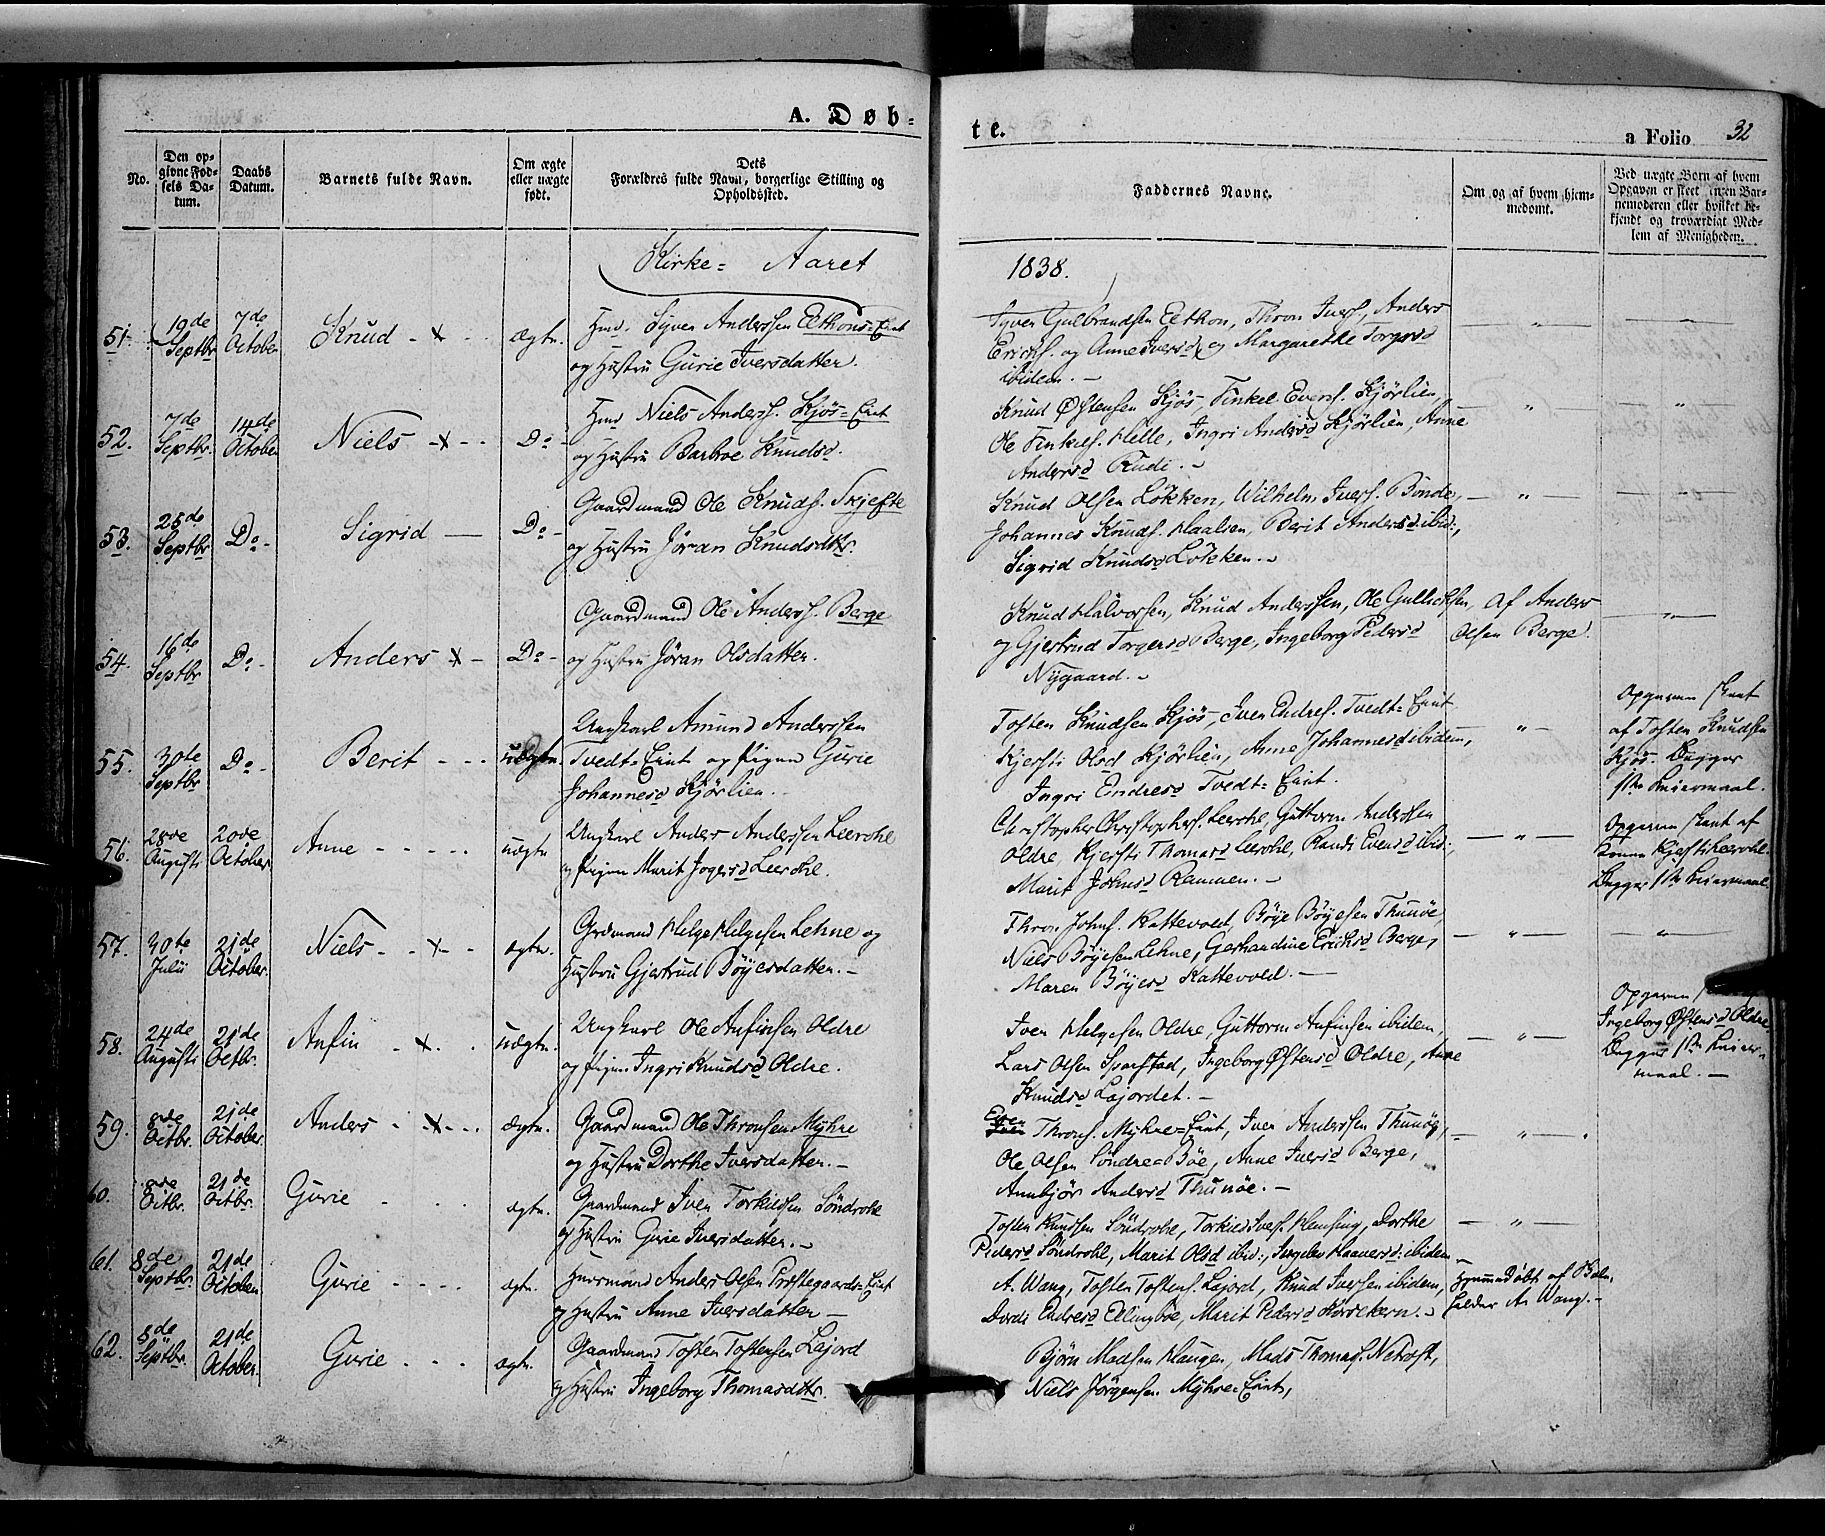 A. Døb-
te.
a Folio 32
No.
Den op-
givne Fød-
sels Da-
tum.
Daabs
Datum.
Barnets fulde Navn.
Om ægte
eller uægte
født.
Dets
Forældres fulde Navn, borgerlige Stilling og
Opholdssted.
Faddernes Navne.
Om og af hvem hjem-
medøbt.
Ved uægte Børn af hvem
Opgaven er skeet
nemoderen eller hvilket be-
kjendt og troværdigt Med-
lem af Menigheden.
Kirke= Aaret
1838.
51.
19de
Septbr
7de
October
Knud
ægte.
Hmd. Syver Anderssen Elthons=Eint
og Hustru Gurie Iversdatter.
Syver Gulbrandsen Elthon, Thron Ivers., Anders
Erichs. og Anne Iversd og Margarethe Torgersd
ibidem.
52.
7de
Septbr.
14de
October
Niels
Do
Hmd Niels Anderss. Kjøs=Eint
og Hustru Barbroe Knudsd.
Knud Østensen Kjøs, Finkel Evens. Kjørlien,
Ole Finkels. Helle, Ingri Andersd Kjørlien, Anne
Andersd Rudi.
53.
25de
Septbr
Do
Sigrid
Do
Gaardmand Ole Knuds. Skjefte
og Hustru Jøran Knudsdttr.
Knud Olsen Løkken, Wilhelm Ivers. Bonde,
Johannes Knuds. Haalien, Berit Andersd ibid:,
Sigrid Knudsd Løkken.
54.
16de
Septbr
Do
Anders
Do
Gaardmand Ole Anderss. Berge
og Hustru Jøran Olsdatter.
Knud Halvorsen, Knud Anderssen, Ole Gullicksen,
og Gjertrud Torgersd Berge, Ingeborg Pedersd
Nygaard.
Af Anders
Olsen Berge.
55.
30te
Septbr
Do
Berit
uægte.
Ungkarl Amund Anderssen
Tvedt=Eint og Pigen Gurie
Johannesd Kjørlien.
Tosten Knudsen Kjøs, Iver Endres. Tvedt=Eint
Kjersti Olsd Kjørlien, Anne Johannesd ibidem,
Ingri Endresd Tvedt=Eint.
Opgaven skeet
af Tosten Knudsen
Kjøs. Begges
1ste Leiermaal.
56.
28de
Augusti
20de
October
Anne
uægte
Ungkarl Anders Anderssen Leerohl
og Pigen Marit Leerohl.
Christopher Christophers. Leerohl, Guttorm Anderssen
Oldre, Kjersti Thomasd Leerohl, Randi Evensd ibid:,
Marit Johnsd Rammen.
Opgaven skeet af
Konen Kjersti Leerohl.
Begges 1ste Leiermaal.
57.
30te
Julii
21de
October.
Niels
ægte.
Grdmand Helge Helgesen Lehne og
Hustru Gjertrud Bøyesdatter.
Thron Johns. Kattevold, Bøye Bøyesen Thunøe,
Niels Bøyesen Lehne, Gerhardine Erichsd Berge,
Maren Bøyesd Kattevold.
58.
24de
Augusti
21de
Octbr.
Anfin
uægte.
Ungkarl Ole Anfinsen Oldre
og Pigen Ingri Knudsd Oldre.
Iver Helgesen Oldre, Guttorm Anfinsen ibidem,
Lars Olsen Sparstad, Ingeborg Østensd Oldre, Anne
Knudsd Lajordet.
Opgaven
Ingeborg Østensd Oldre.
Begges 1ste Leier-
maal.
59.
8de
Octbr.
21de
October.
Anders
ægte.
Gaardmand Ole Thronsen Myhre
og Hustru Dorthe Iversdatter.
Even
Throns. Myhre=Eint, Iver Anderssen Thunøe,
Ole Olsen Søndre=Bøe, Anne Iversd Berge,
Annbjør Andersd Thunøe.
60.
8de
Octbr.
21de
Octbr.
Gurie
ægte.
Gaardmand Iver Torkildsen Søndrohl
og Hustru Gurie Iversdatter.
Tosten Knudsen Søndrohl, Torkild Ivers. Hensing, Dorthe
Pedersd Søndrohl, Marit Olsd ibid:, ibidem
61.
8de
Septbr.
21de
October
Gurie
ægte.
Huusmand Anders Olsen Præstegaards=Eint
og Hustru Anne Iversdatter
A. Wang, Tosten Tostens. Lajord, Knud Iversen ibidem,
Dordi Endresd Ellingbøe, Marit Pedersd
Hjemmedøbt af
A. Wang.
62.
8de
Septbr.
21de
October.
Gurie
ægte.
Gaardmand Tosten Tostensen Lajord
og Hustru Ingeborg Thomasdttr.
Bjørn Madsen Haugen, Mads Thomas. Nefrost,
Niels Jørgensen Myhre=Eint,